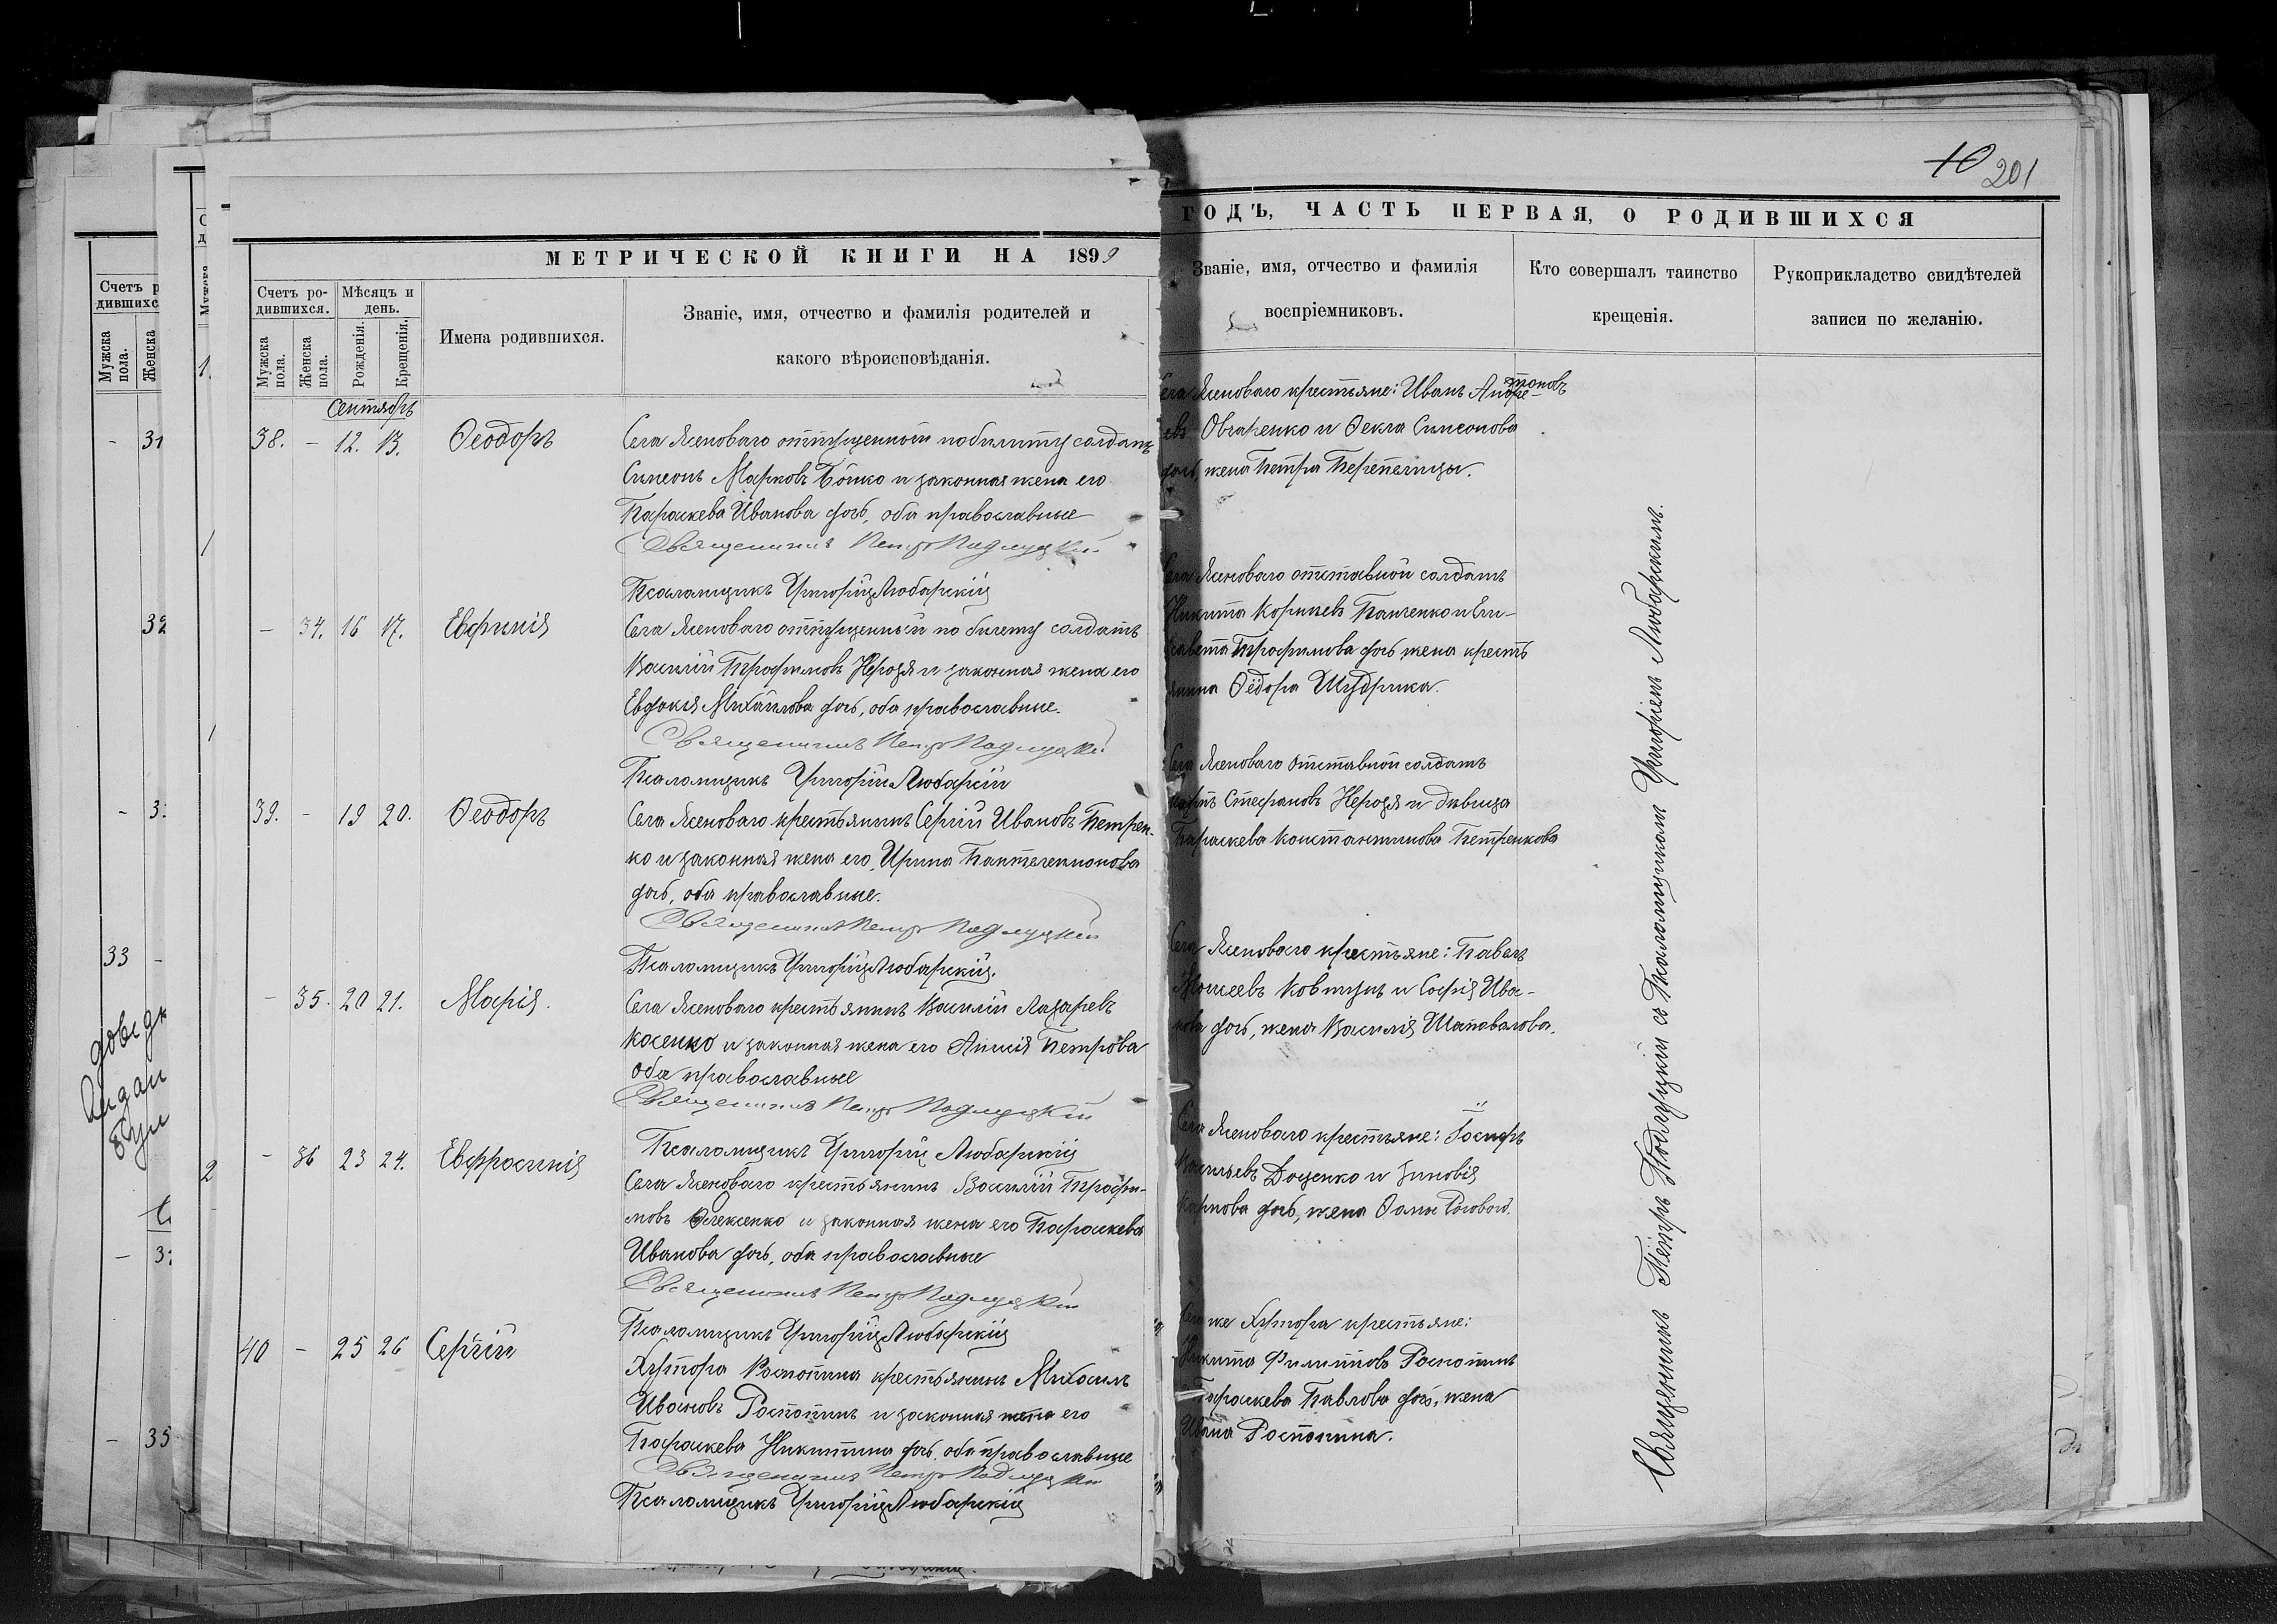 10 201
МЕТРИЧЕСКОЙ КНИГИ НА 1899
Счетъ родившихся.
Мѣсяцъ и день.
Мужска пола.
Женска пола.
Рожденія.
Крещенія.
Имена родившихся.
Званіе, имя, отчество и фамилія родителей и
какого вѣроисповѣданія.
Сентябрь
38. - 12. 13. Ѳеодоръ
Села Ясеноваго отпущенный по билету солдатъ
Симеонъ Марковъ Бойко и законная жена его
Параскева Иванова дочь, оба православные
Священникъ Петръ Подлуцкій
Псаломщикъ Григорій Любарскій
- 34. 16 17. Евфимія
Села Ясеноваго отпущенный по билету солдатъ
Василій Трофимовъ Нерозя и законная жена его
Евдокія Михайлова дочь, оба православные.
Священникъ Петръ Подлуцкій
Псаломщикъ Григорій Любарскій
39. - 19 20. Ѳеодоръ
Села Ясеноваго крестьянинъ Сергій Ивановъ Петрен-
ко и законная жена его, Ирина Пантелеимонова
дочь, оба православные.
Священникъ Петръ Подлуцкій
Псаломщикъ Григорій Любарскій.
- 35. 20 21. Марія.
Села Ясеноваго крестьянинъ Василій Лазаревъ
Косенко и законная жена его Анисія Петрова
оба православные
Священникъ Петръ Подлуцкій
Псаломщикъ Григорій Любарскій
- 36 23 24. Евфросинія
Села Ясеноваго крестьянинъ Василій Трофи-
мовъ Олексенко и законная жена его Параскева
Иванова дочь, оба православные
Священникъ Петръ Подлуцкій
Псаломщикъ Григорій Любарскій
40 - 25 26 Сергій
Хутора Распопина крестьянинъ Михаилъ
Ивановъ Роспопинъ и законная жена его
Параскева Никитина дочь, оба православные
Священникъ Петръ Подлуцкій
Псаломщикъ Григорій Любарскій
ГОДЪ, ЧАСТЬ ПЕРВАЯ, О РОДИВШИХСЯ
Званіе, имя, отчество и фамилія
воспріемниковъ.
Кто совершалъ таинство
крещенія.
Рукоприкладство свидѣтелей
записи по желанію.
Села Ясеноваго крестьяне: Иванъ
Овчаренко и Ѳекла Симеонова
дочь, жена Петра Перепелицы.
Села Ясеноваго отставной солдатъ
Никита Панченко и Ели-
савета Трофимова дочь жена кресть
янина Ѳёдора Шудрика.
Села Ясеноваго отставной солдатъ
Стефановъ Нерозя и дѣвица
Параскева Константинова Петренкова
Села Ясеноваго крестьяне: Павелъ
Моисеевъ Ковтунъ и Софія Ива-
нова дочь, жена Василія Шаповалова.
Села Ясеноваго крестьяне: Іосифъ
Васильевъ Доценко и Зиновія
Карпова дочь, жена Ѳомы
же Хутора крестьяне:
Никита Филиповъ Роспопинъ
Параскева Павлова дочь, жена
Ивана Роспопина.
Священникъ Петръ Подлуцкій съ Псаломщикомъ Григоріемъ Любарскимъ.
Счетъ р
дившихс
Мужска пола.
Женска
- 31
32
33 -
- 35